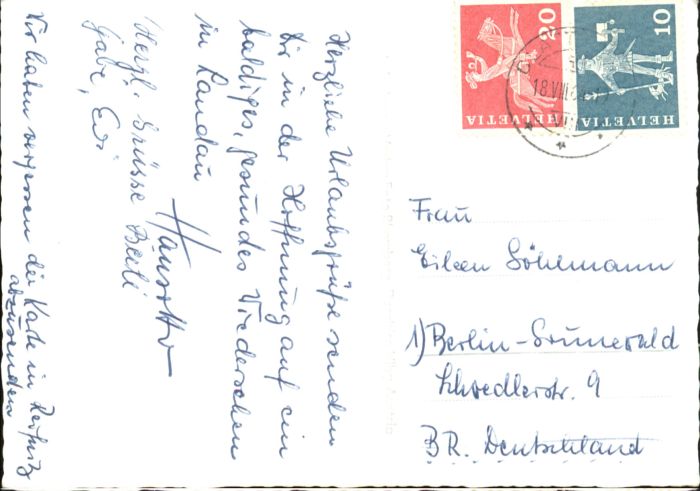 Herzliche Urlaubsgrüße senden
Dir in der Hoffnung auf ein
baldiges, gesundes Wiedersehen
in Landau
Hansotto
Herzl. Grüsse Berti
Gabi, Edi
Wir haben vergessen die Karte in
abzusenden
20
HELVETIA
10
HELVETIA
18.VIII
Frau
Eileen Söhlmann
1) Berlin-Grunewald
9
BR. Deutschland